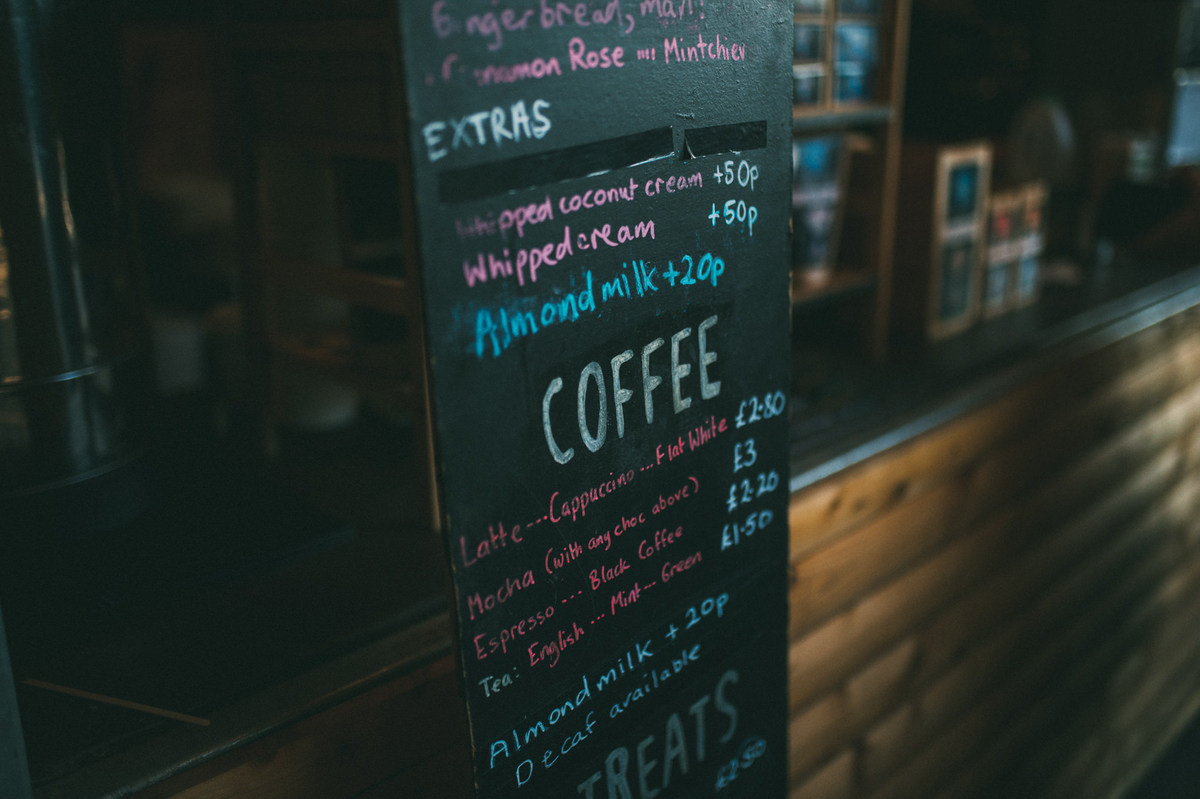 Gingerbread, man!
Cinnamon Rose .... Mintchiev
EXTRAS
Whipped coconut cream +50p
Whipped cream +50p
Almond milk +20p
COFFEE
Latte --- Cappuccino ... Flat White £2.80
Mocha (with any choc above) £3
Espresso --- Black Coffee £2.20
Tea: English ... Mint --- Green £1.50
Almond milk + 20p
Decaf available
TREATS
£2.50